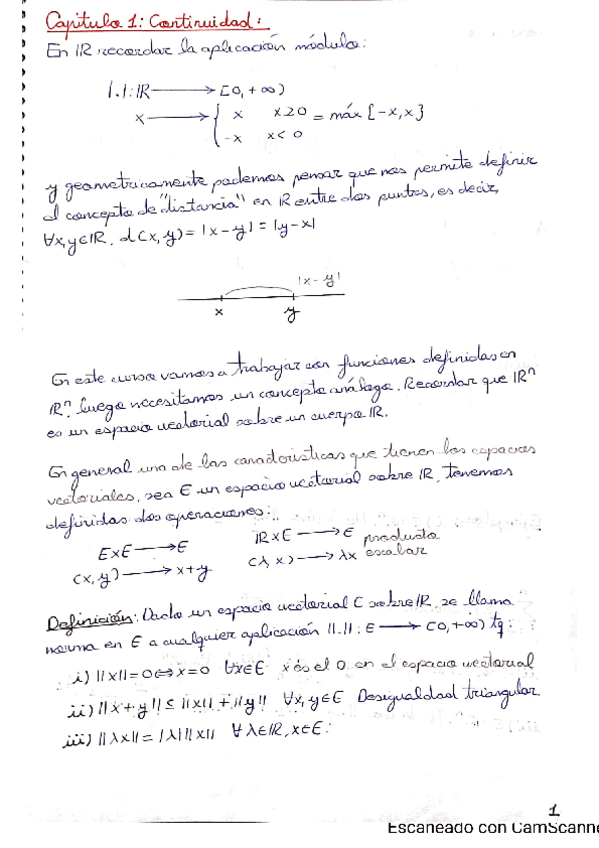 Capítulo 1: Continuidad:
En IR recordar la aplicación módulo:
|.|: IR ⟶ [0,+∞)
x ⟶ { x x≥0 = máx {-x,x}
-x x<0
y geometricamente podemos pensar que nos permite definir
el concepto de "distancia" en IR entre dos puntos, es decir,
∀x,y∈IR. d(x,y)=|x-y|=|y-x|
|x-y|
x y
En este curso vamos a trabajar con funciones definidas en
IRⁿ, luego necesitamos un concepto análogo. Recordar que IRⁿ
es un espacio vectorial sobre un cuerpo IR.
En general una de las características que tienen los espacios
vectoriales, sea E un espacio vectorial sobre IR, tenemos
definidas dos operaciones:
ExE ⟶ E IRxE ⟶ E producto
(x,y) ⟶ x+y (λ,x) ⟶ λx escalar
Definición: Dado un espacio vectorial E sobre IR, se llama
norma en E a cualquier aplicación ||.||: E ⟶ [0,+∞) tq:
i) ||x||=0⇔x=0 ∀x∈E x es el 0 en el espacio vectorial
ii) ||x+y||≤||x||+||y|| ∀x,y∈E Desigualdad triangular
iii) ||λx||=|λ|||x|| ∀λ∈IR, x∈E.
1
Escaneado con CamScanne